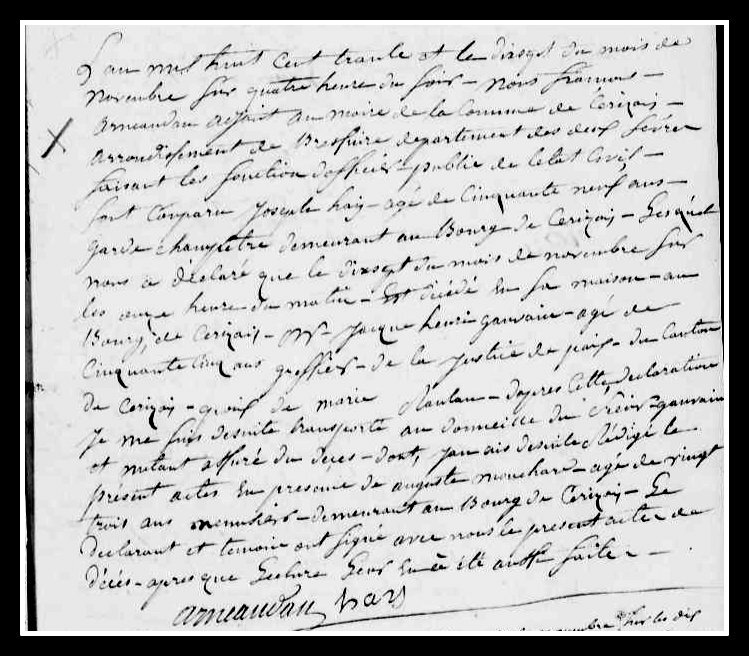 L'an mil huit cent trante et le dixsept du mois de
Novembre sur quatre heure du soir - nous francois -
arneaudau adjoint au maire de la Commune de Cerizais -
arrondissement de Bressuire departement des deux sèvres
faisant les fonction d'officier - public de letat Civil -
sont Comparu Joseph hay - agé de Cinquante neuf ans -
garde Champêtre demeurant au Bourg de Cerizais - Lesquel
nous a déclaré que le dixsept du mois de novembre sur
les onze heure du matin - Est décédé en sa maison - au
Bourg de Cerizais - Mr Jacque henri gauvain - agé de
Cinquante cinq ans greffier - de la Justice de paix - du Canton
de Cerizais - de marie - d'apres Cette declaration
Je me suis desuite transporté au domicille du gauvain
et metant assuré du deces - dont, desuite Rédigé le
présent actes En presence de auguste mouchard - agé de vingt
trois ans menuisier - demeurant au Bourg de Cerizais - Le
declarant et temoin ont signé avec nous le present acte de
décés - apres que Lecture Leur En a été faite -
arneaudau hay
novembre sur les dix